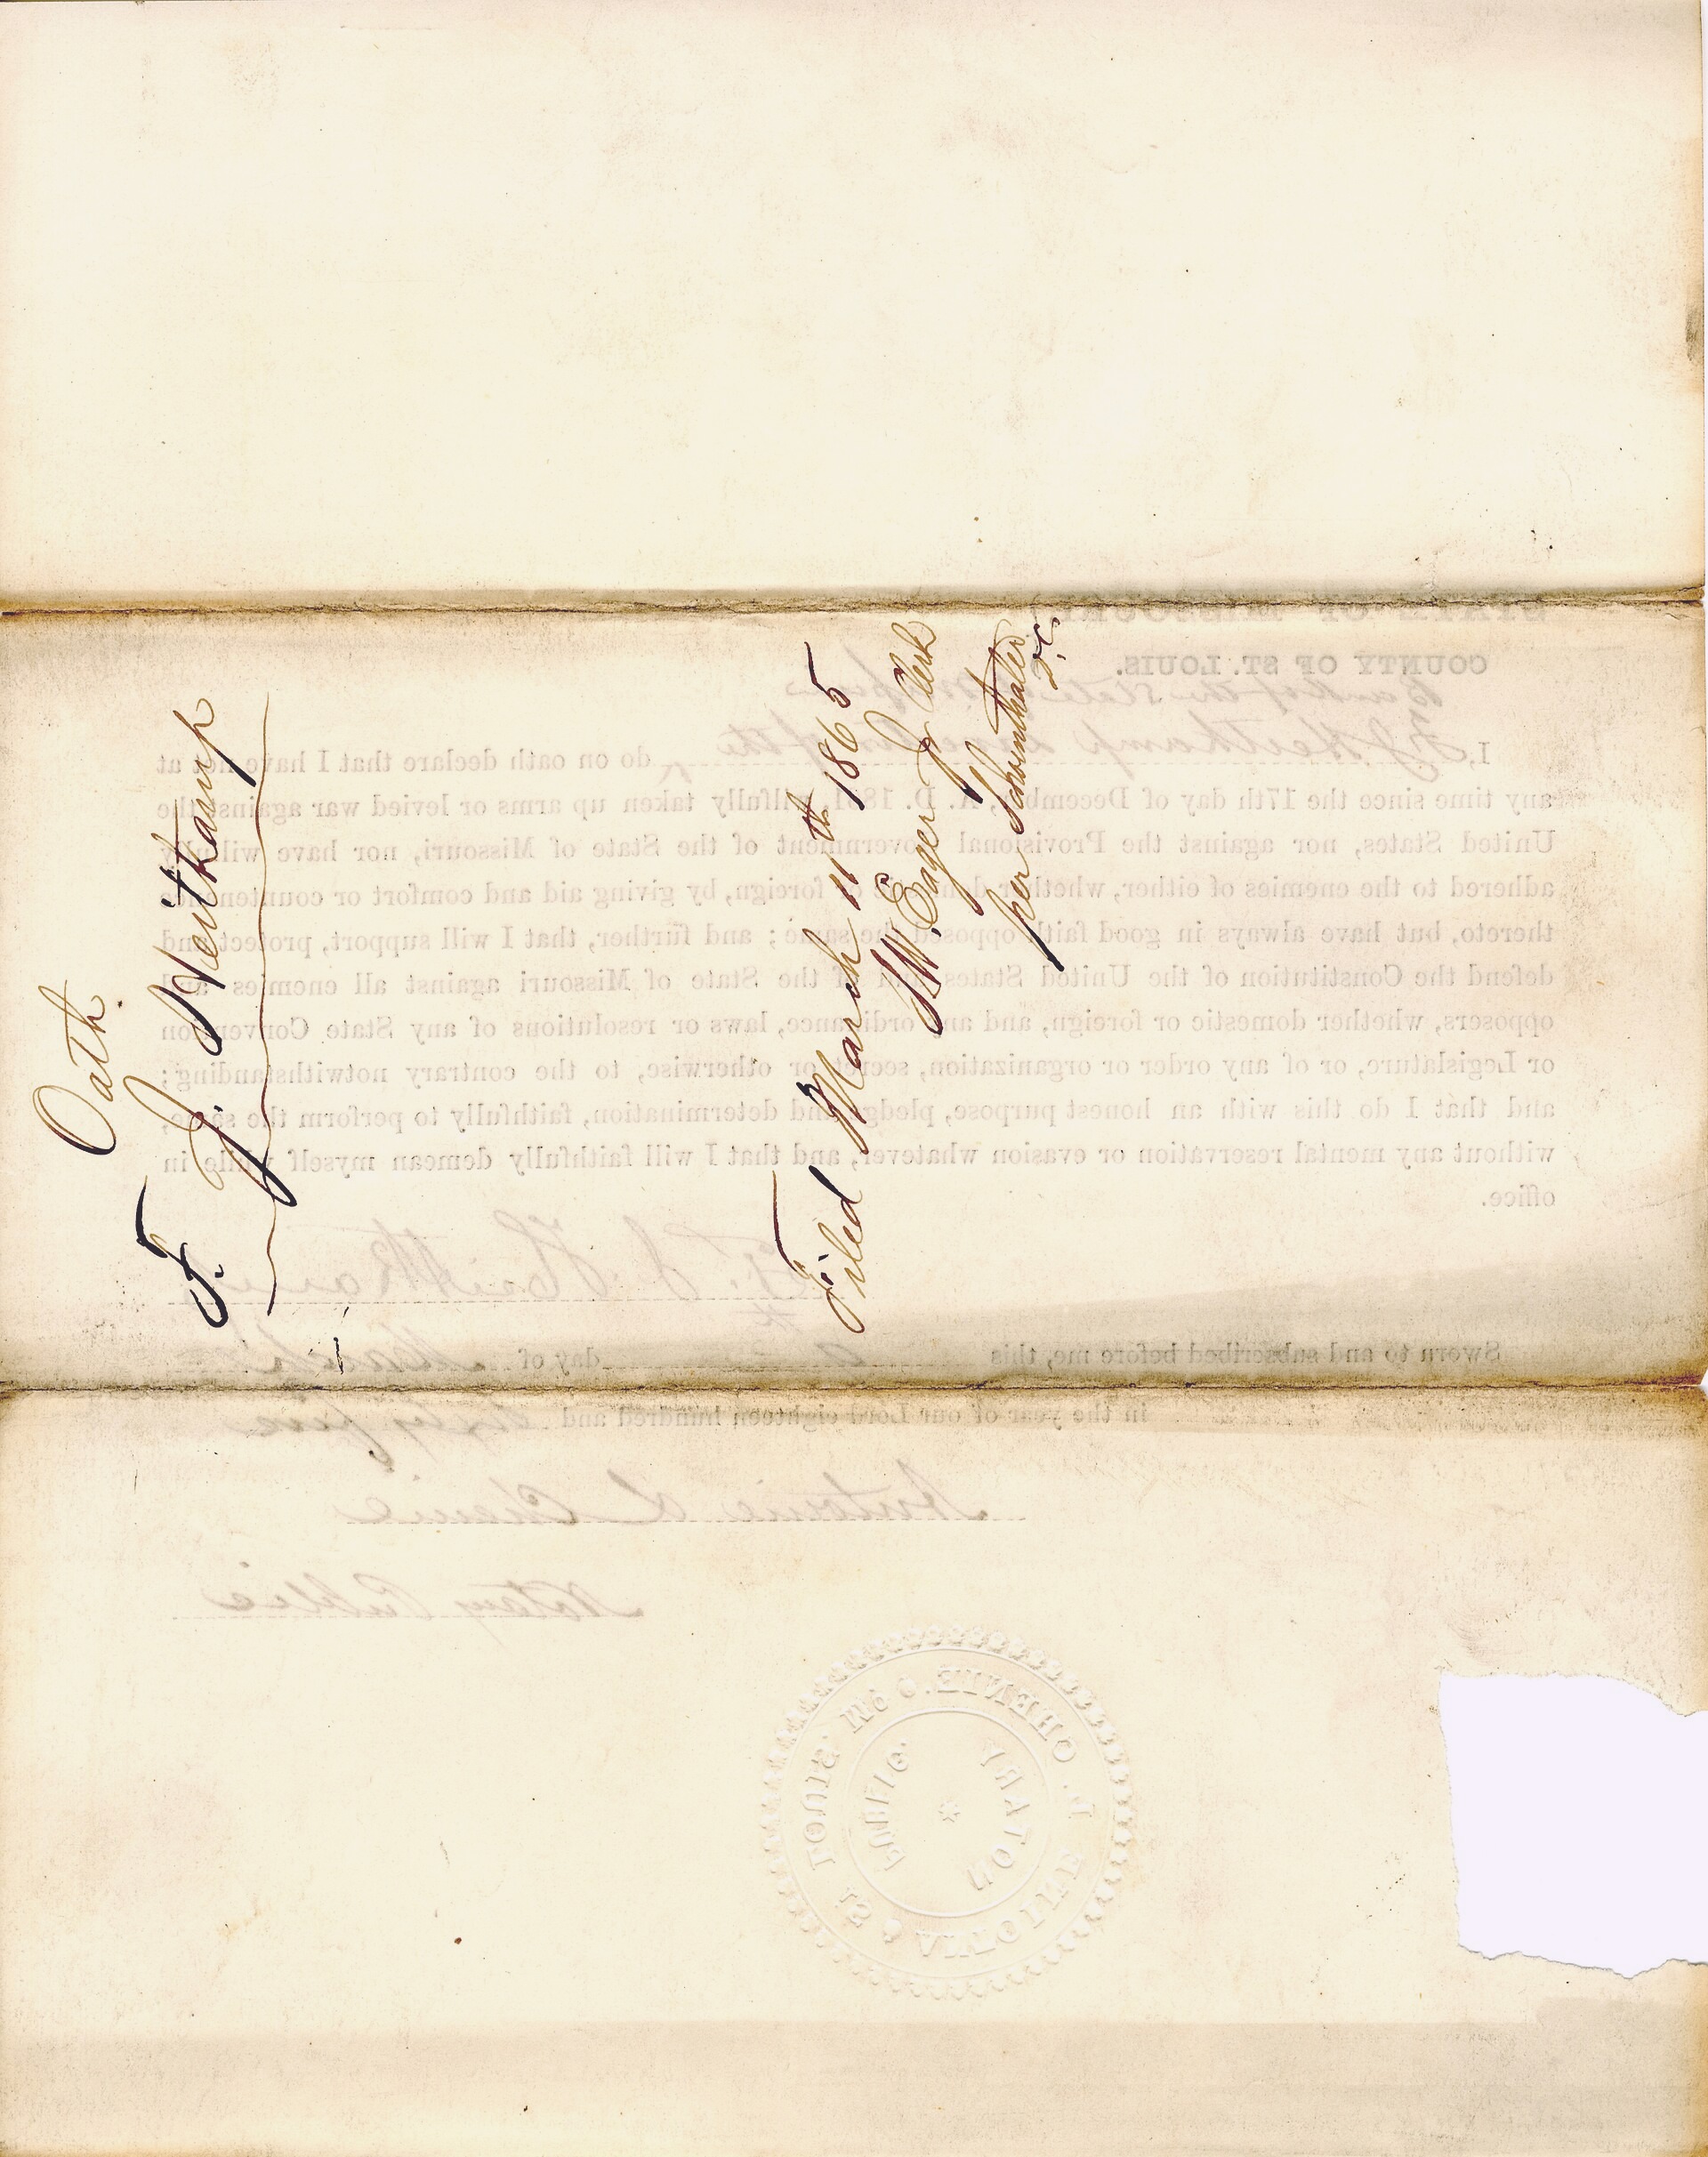 Oath.
F. J. Heitkamp
Filed March 11th 1865
S.W. Eager Jr Clerk
per Schoenthaler
D.C.
COUNTY OF ST. LOUIS.
Bank of the State
I, F J Heitkamp of the do on oath declare that I have not at
any time since the 17th day of December, A. D. 1861, wilfully taken up arms or levied war against the
United States, nor against the Provisional Government of the State of Missouri, nor have wilfully
adhered to the enemies of either, whether domestic or foreign, by giving aid and comfort or countenance
thereto, but have always in good faith opposed the same; and further, that I will support, protect and
defend the Constitution of the United States and of the State of Missouri against all enemies and
opposers, whether domestic or foreign, and any ordinance, laws or resolutions of any State Convention
or Legislature, or of any order or organization, secret or otherwise, to the contrary notwithstanding;
and that I do this with an honest purpose, pledge and determination, faithfully to perform the same,
without any mental reservation or evasion whatever, and that I will faithfully demean myself while in
office.
F. J. Heitkamp
Sworn to and subscribed before me, this day of March
in the year of our Lord eighteen hundred and sixty five
Antoine L Chenie
Notary Public
ANTOINE L. CHENIE. ST LOUIS. Mo
NOTARY PUBLIC.